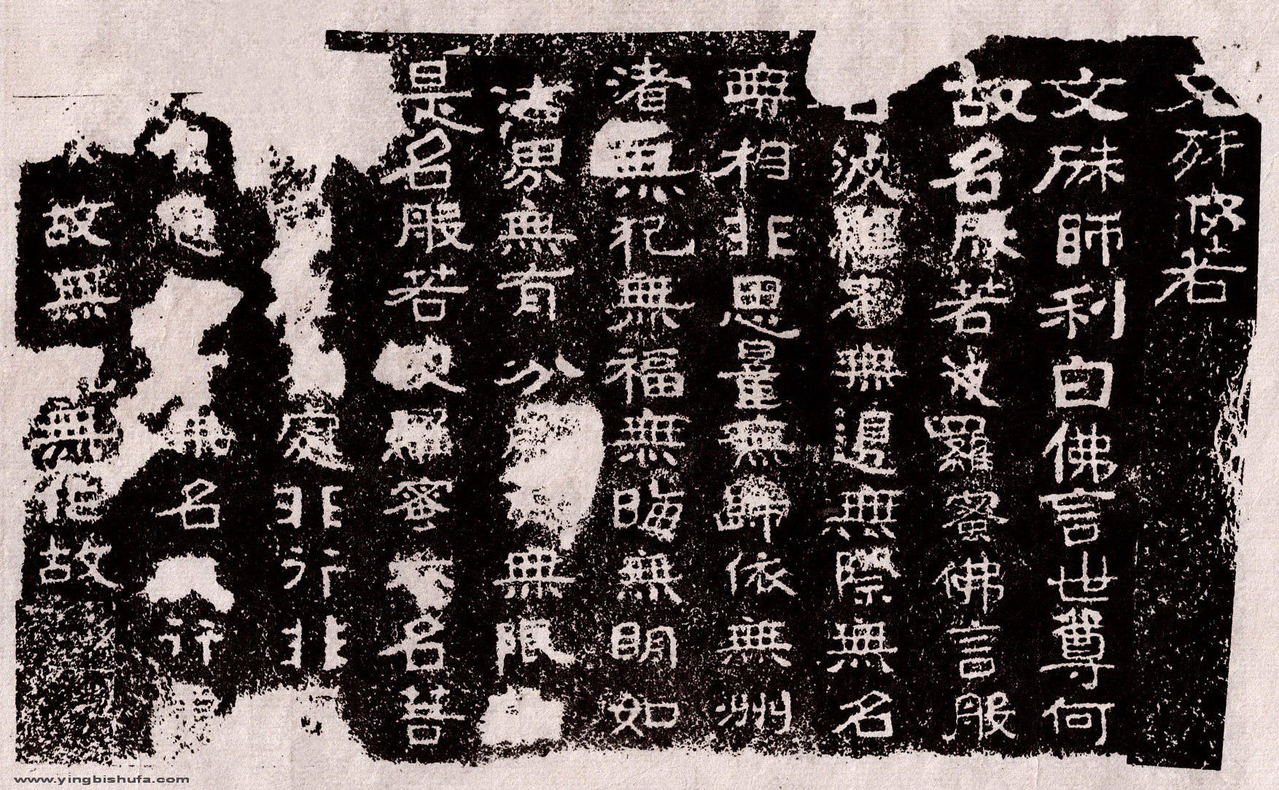 文殊般若
文殊師利白佛言世尊何
故名般若波羅蜜佛言般
若波羅蜜無邊無際無名
無相非思量無歸依無洲
渚無犯無福無晦無明如
法界無有分無限
是名般若波羅蜜亦名菩
處非行非
無名
故無無作故
www.yingbishufa.com